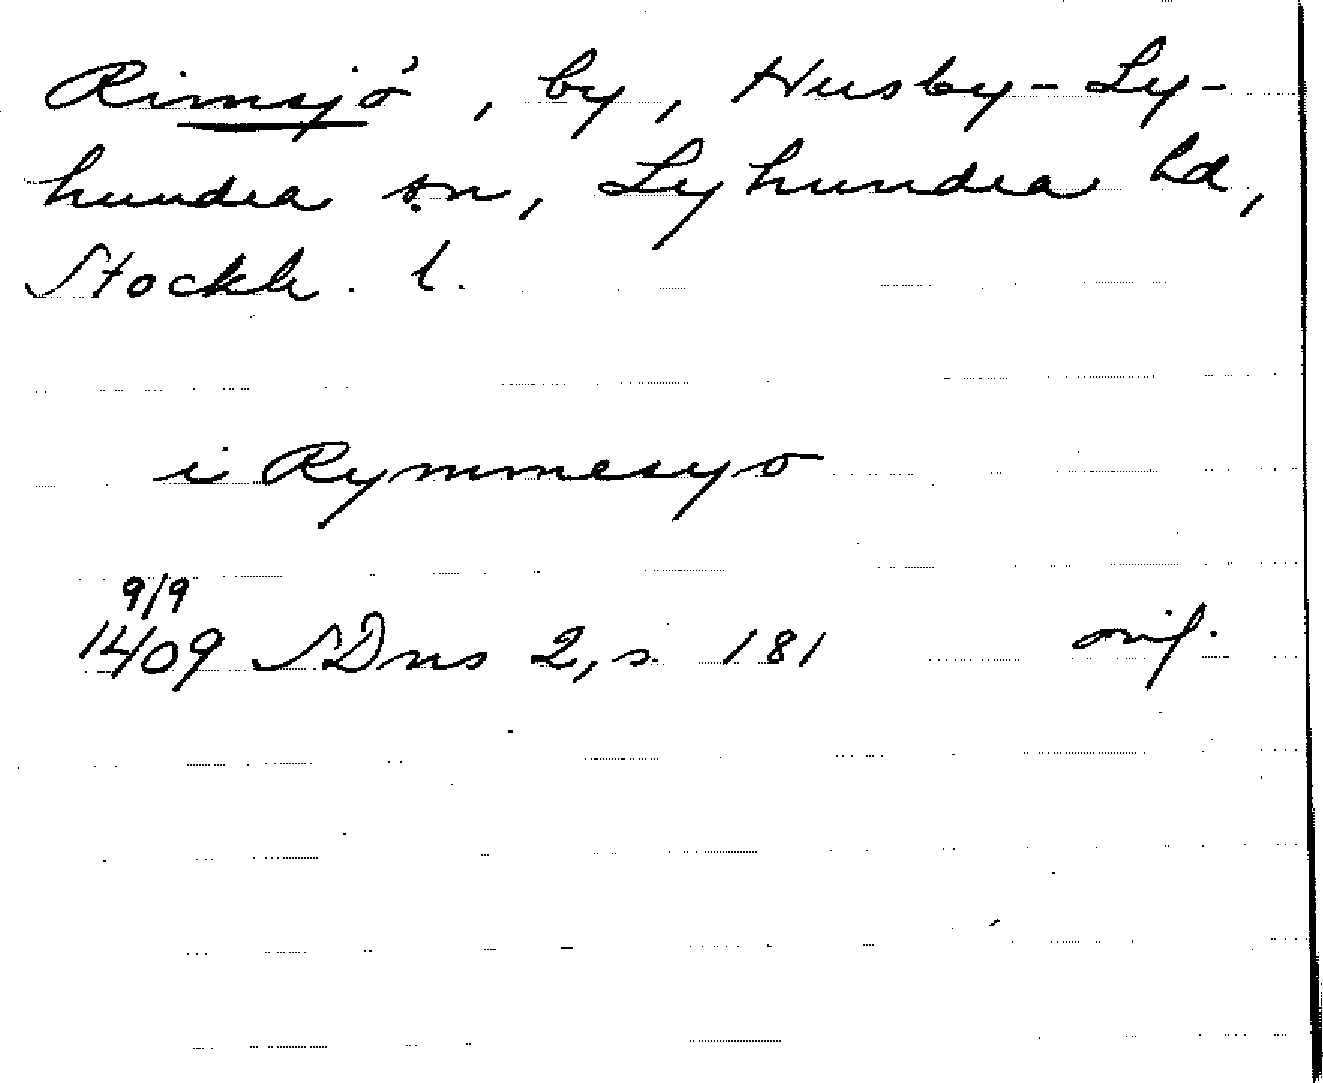 Rimsjö, by, Husby-Ly-
hundra sn, Lyhundra hd,
Stockh. l.
i Rymmesyo
9/9
1409 SDns 2, s. 181 orig.